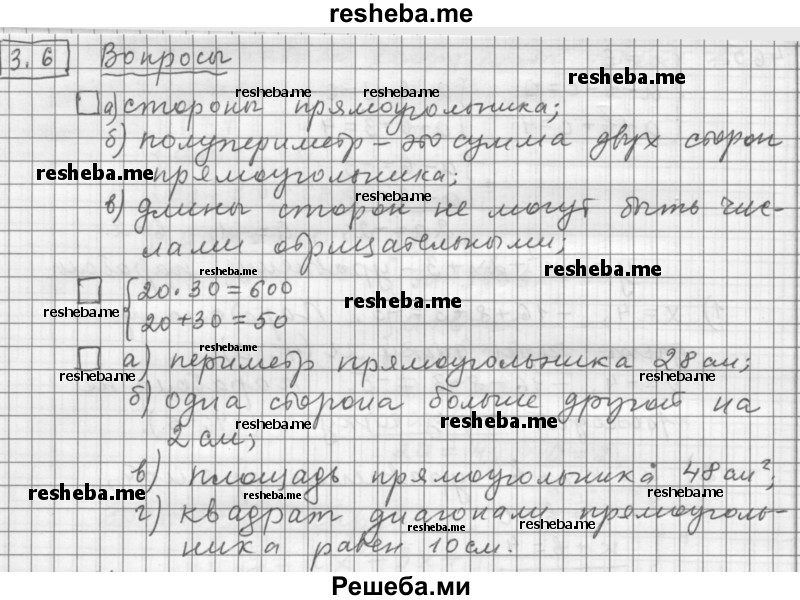 resheba.me
3.6 Вопросы
resheba.me
resheba.me resheba.me
а) стороны прямоугольника;
б) полупериметр – это сумма двух сторон
resheba.me прямоугольника;
resheba.me
в) длины сторон не могут быть чис-
лами отрицательными;
resheba.me resheba.me
20·30=600
resheba.me resheba.me
20+30=50
resheba.me
а) периметр прямоугольника 28см;
resheba.me resheba.me
б) одна сторона больше другой на
resheba.me resheba.me
2см;
в) площадь прямоугольника 48см²;
resheba.me resheba.me resheba.me
г) квадрат диагонали прямоуголь-
resheba.me resheba.me
ника равен 10см.
Решеба.ми